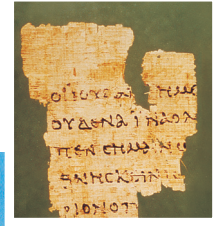 ΟΙ ΙΟΥΔΑ ΗΜΕ
ΟΥΔΕΝΑ ΙΝΑ Ο Λ
ΠΕΝ ϹΗΜΑΙΝΩ
ΘΝΗϹΚΕΙΝ
ΡΙΟΝ Ο Π